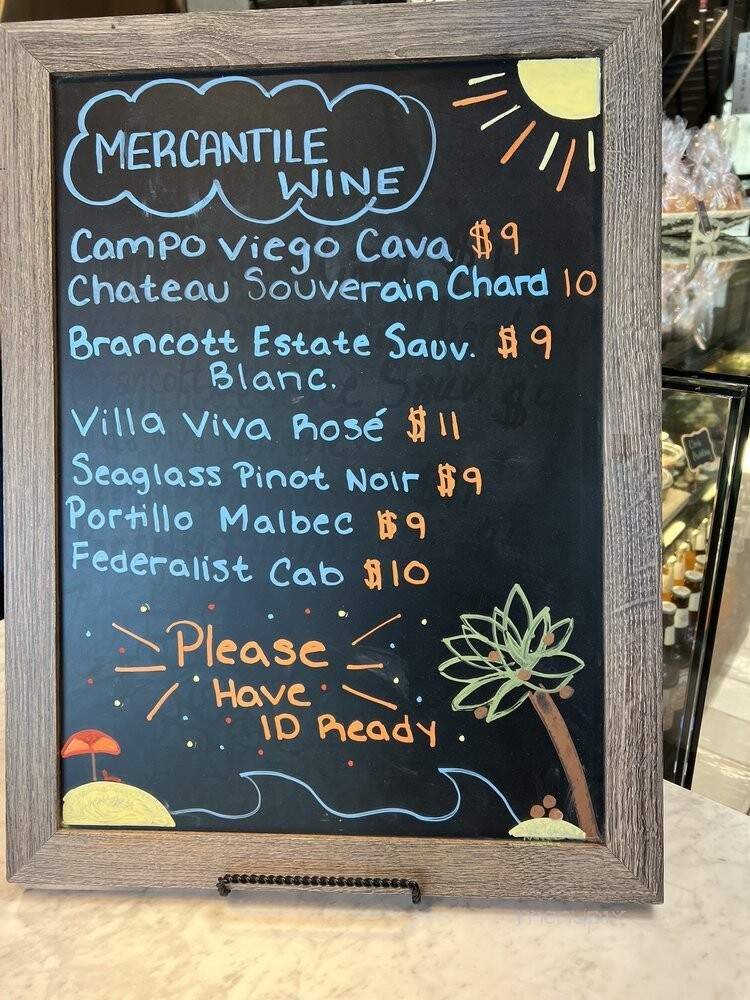 MERCANTILE
WINE
Campo Viego Cava $9
Chateau Souverain Chard 10
Brancott Estate Sauv. $9
Blanc.
Villa Viva Rosé $11
Seaglass Pinot Noir $9
Portillo Malbec $9
Federalist Cab $10
Please
Have
ID Ready